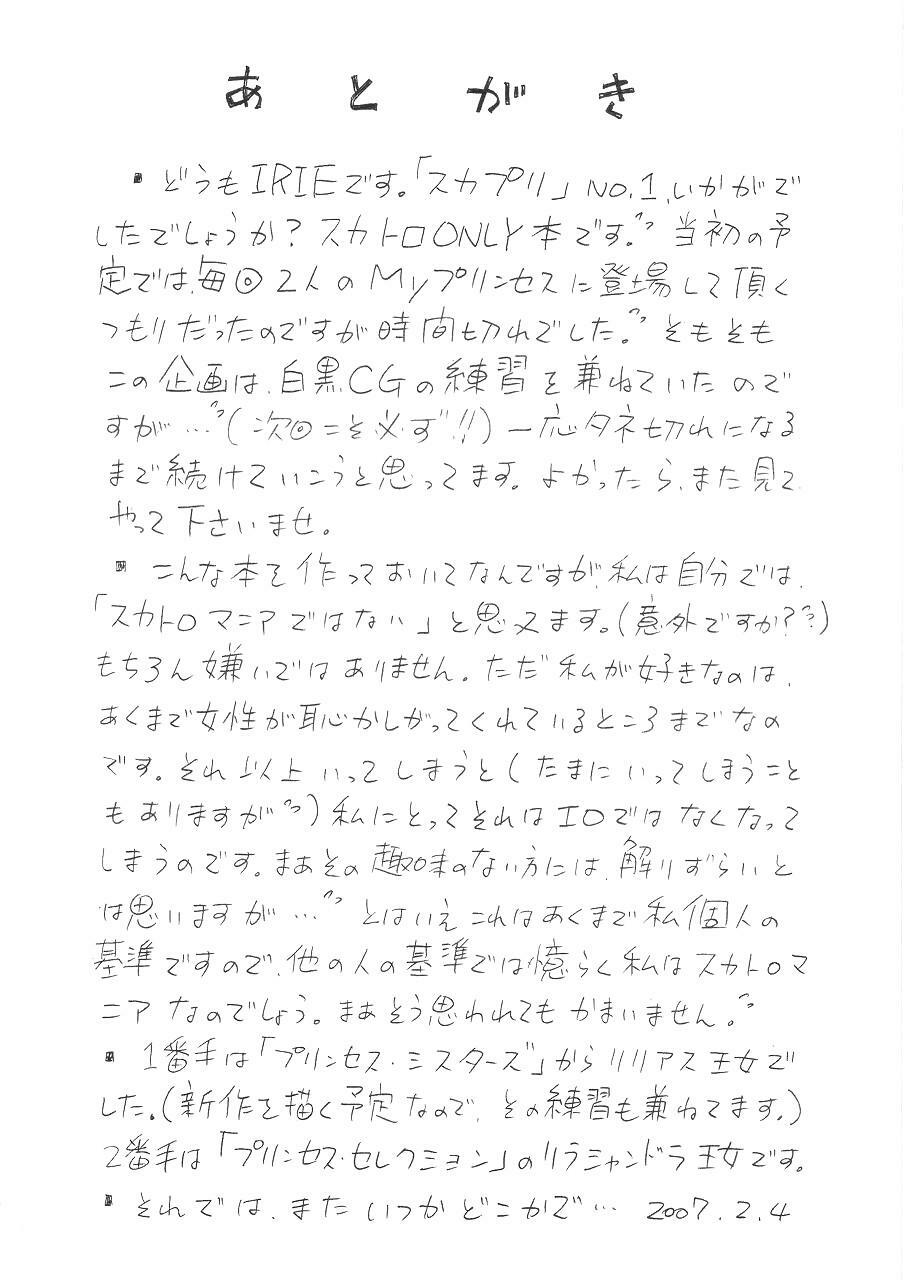 あとがき
▪どうもIRIEです。「スカプリ」NO.1、いかがで
したでしょうか？スカトロONLY本です。〃当初の予
定では、毎回2人のMyプリンセスに登場して頂く
つもりだったのですが時間切れでした。〃そもそも
この企画は、白黒CGの練習を兼ねていたので
すが…〃(次回こそ必ず!!)一応タネ切れになる
まで続けていこうと思ってます。よかったら、また見て
やって下さいませ。
▪こんな本を作っておいてなんですが、私は自分では、
「スカトロマニアではない」と思ってます。(意外ですか??)
もちろん嫌いではありません。ただ私が好きなのは、
あくまで女性が恥かしがってくれているところまでなの
です。それ以上いってしまうと(たまにいってしまうこと
もありますが〃)私にとってそれはIOではなくなって
しまうのです。まぁその趣味のない方には、解りずらいと
は思いますが…〃とはいえこれはあくまで私個人の
基準ですので、他の人の基準では憶らく私はスカトロマ
ニアなのでしょう。まぁそう思われてもかまいません。〃
▪1番手は「プリンセス・ミスターズ」からリリアス王女で
した。(新作を描く予定なので、その練習も兼ねてます。)
2番手は「プリンセス・セレクション」のリラシャンドラ王女です。
▪それでは、またいつかどこかで… 2007.2.4